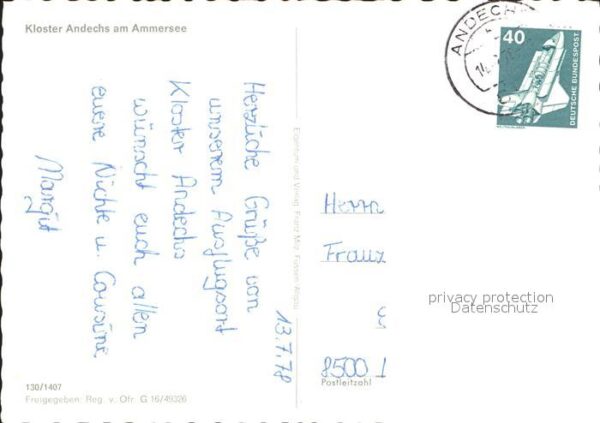 Kloster Andechs am Ammersee
ANDECHS
40
DEUTSCHE BUNDESPOST
13.7.78
Herzliche Grüße von
unserem Ausflugsort
Kloster Andechs
wünscht euch allen
euere Nichte u. Cousine
Margit
Herrn
Franz
8500 1
Postleitzahl
privacy protection
Datenschutz
130/1407
Freigegeben: Reg. v. Ofr. G 16/49326